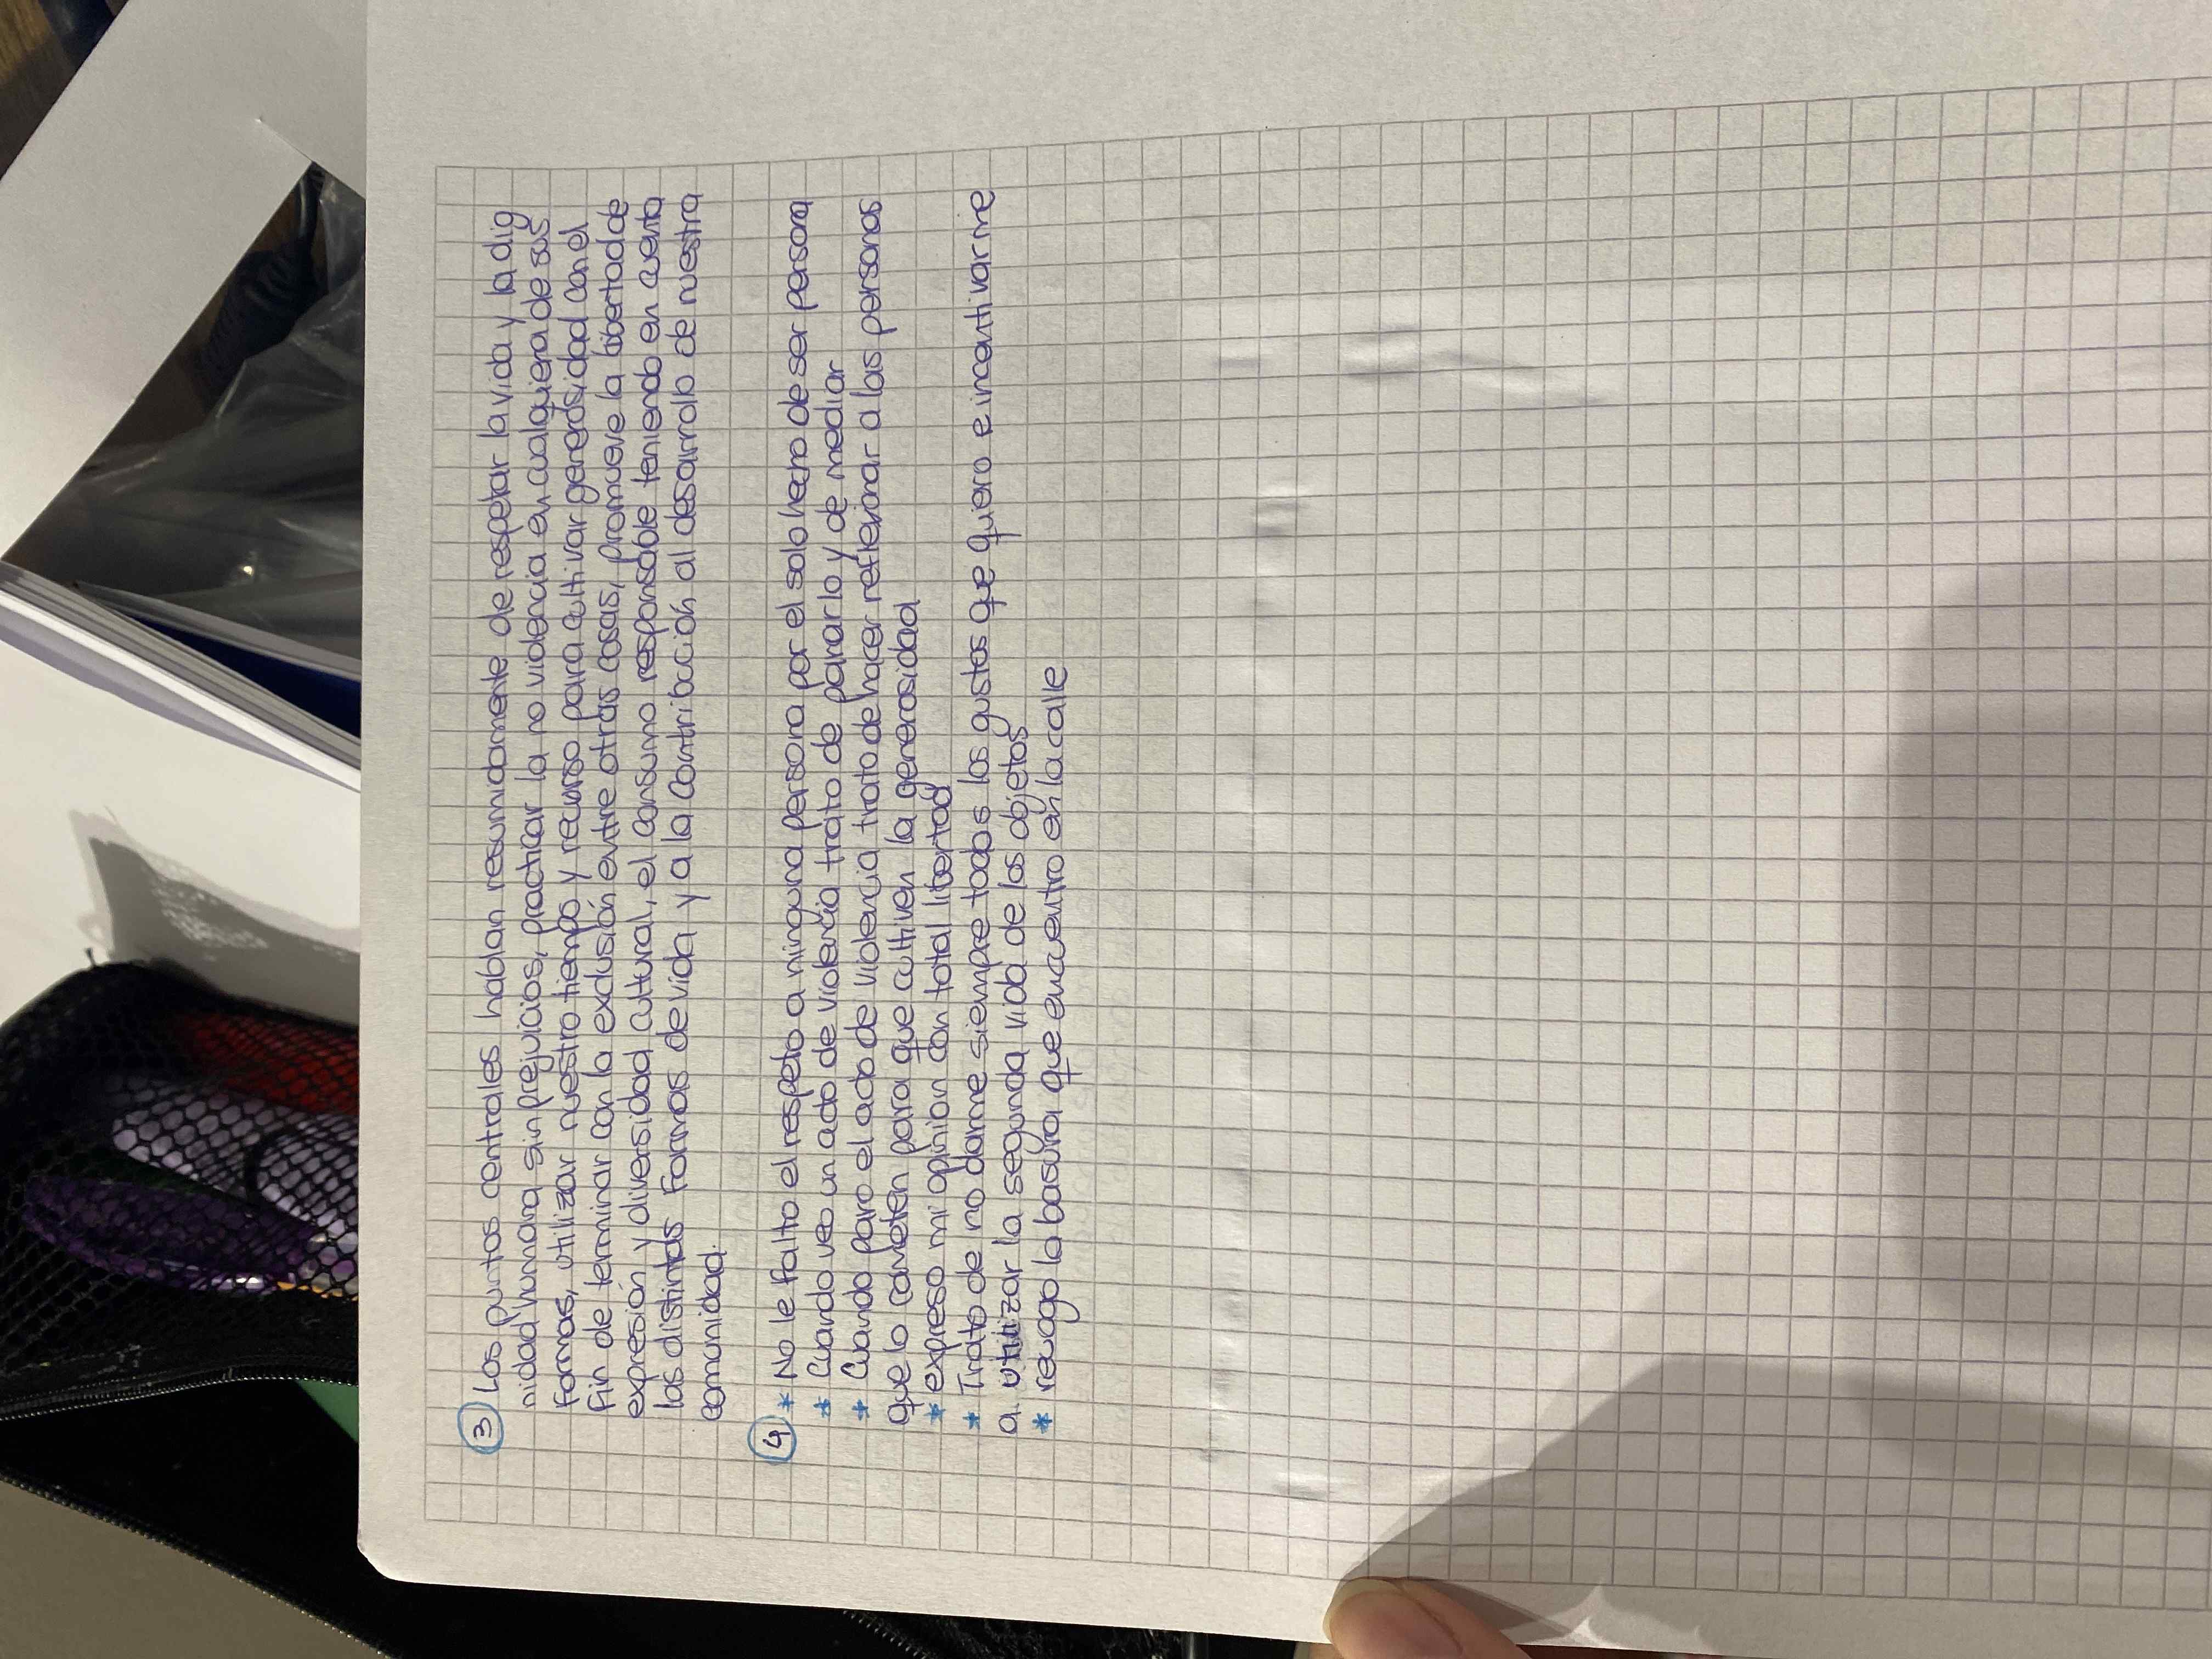 3 Los puntos centrales hablan resumidamente de respetar la vida y la dig
nidad humana sin prejuicios, practicar la no violencia en cualquiera de sus
formas, utilizar nuestro tiempo y recurso para cultivar generosidad con el
fin de terminar con la exclusión entre otras cosas, promueve la libertad de
expresión y diversidad cultural, el consumo responsable teniendo en cuenta
las distintas formas de vida y a la contribución al desarrollo de nuestra
comunidad.
4 * No le falto el respeto a ninguna persona por el solo hecho de ser persona
* Cuando veo un acto de violencia trato de pararlo y de mediar
* Cuando paro el acto de violencia trato de hacer reflexionar a las personas
que lo cometen para que cultiven la generosidad
* expreso mi opinion con total libertad
* Trato de no darme siempre todos los gustos que quiero e incentivarme
a utilizar la segunda vida de los objetos
* recago la basura que encuentro en la calle